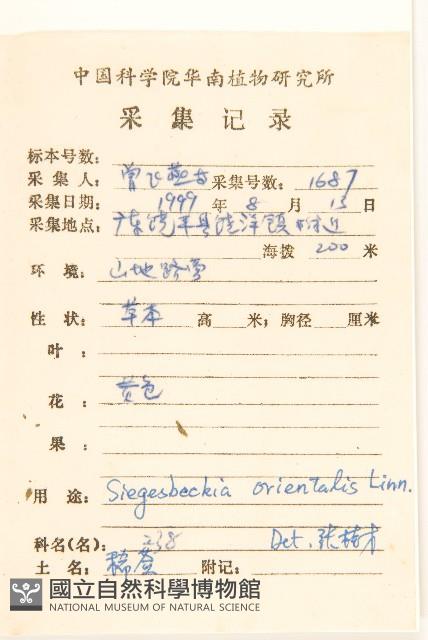 中国科学院华南植物研究所
采集记录
标本号数:
采集人: 曾飞燕 采集号数: 1687
采集日期: 1999 年 8 月 15 日
采集地点: 广东饶平县饶洋镇附近
海拨 200 米
环境: 山地路旁
性状: 草本 高 米; 胸径 厘米
叶:
花: 黄色
果:
用途: Siegesbeckia orientalis Linn.
科名(名): 238 Det. 张桂才
土名: 豨莶 附记:
國立自然科學博物館
NATIONAL MUSEUM OF NATURAL SCIENCE